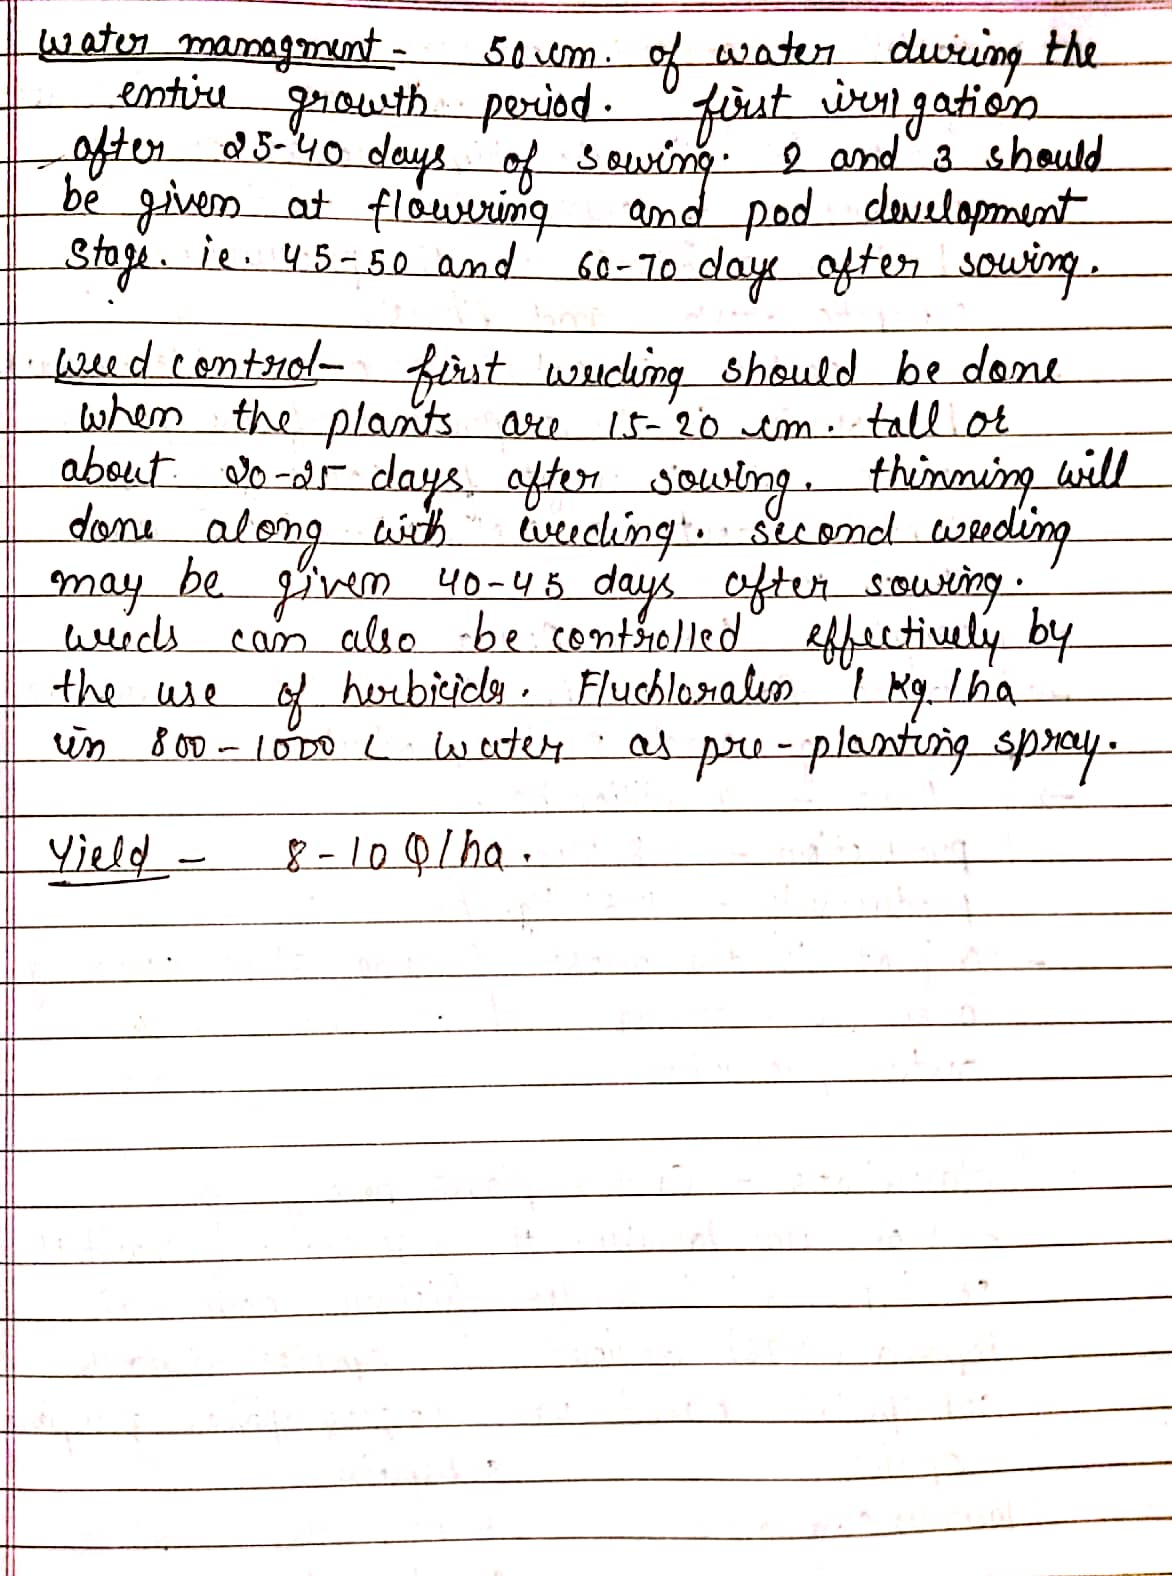 Water managment - 50 cm. of water during the
entire growth period. first irrigation
after 25-40 days of sowing. 2 and 3 should
be given at flowering and pod development
stage. ie. 45-50 and 60-70 days after sowing.
Weed control - first weeding should be done
when the plants are 15-20 cm. tall or
about 20-25 days after sowing. thinning will
done along with weeding. second weeding
may be given 40-45 days after sowing.
weeds can also be controlled effectively by
the use of herbicides. Fluchloralin 1 Kg./ha
in 800-1000 L water as pre-planting spray.
Yield - 8-10 Q/ha.